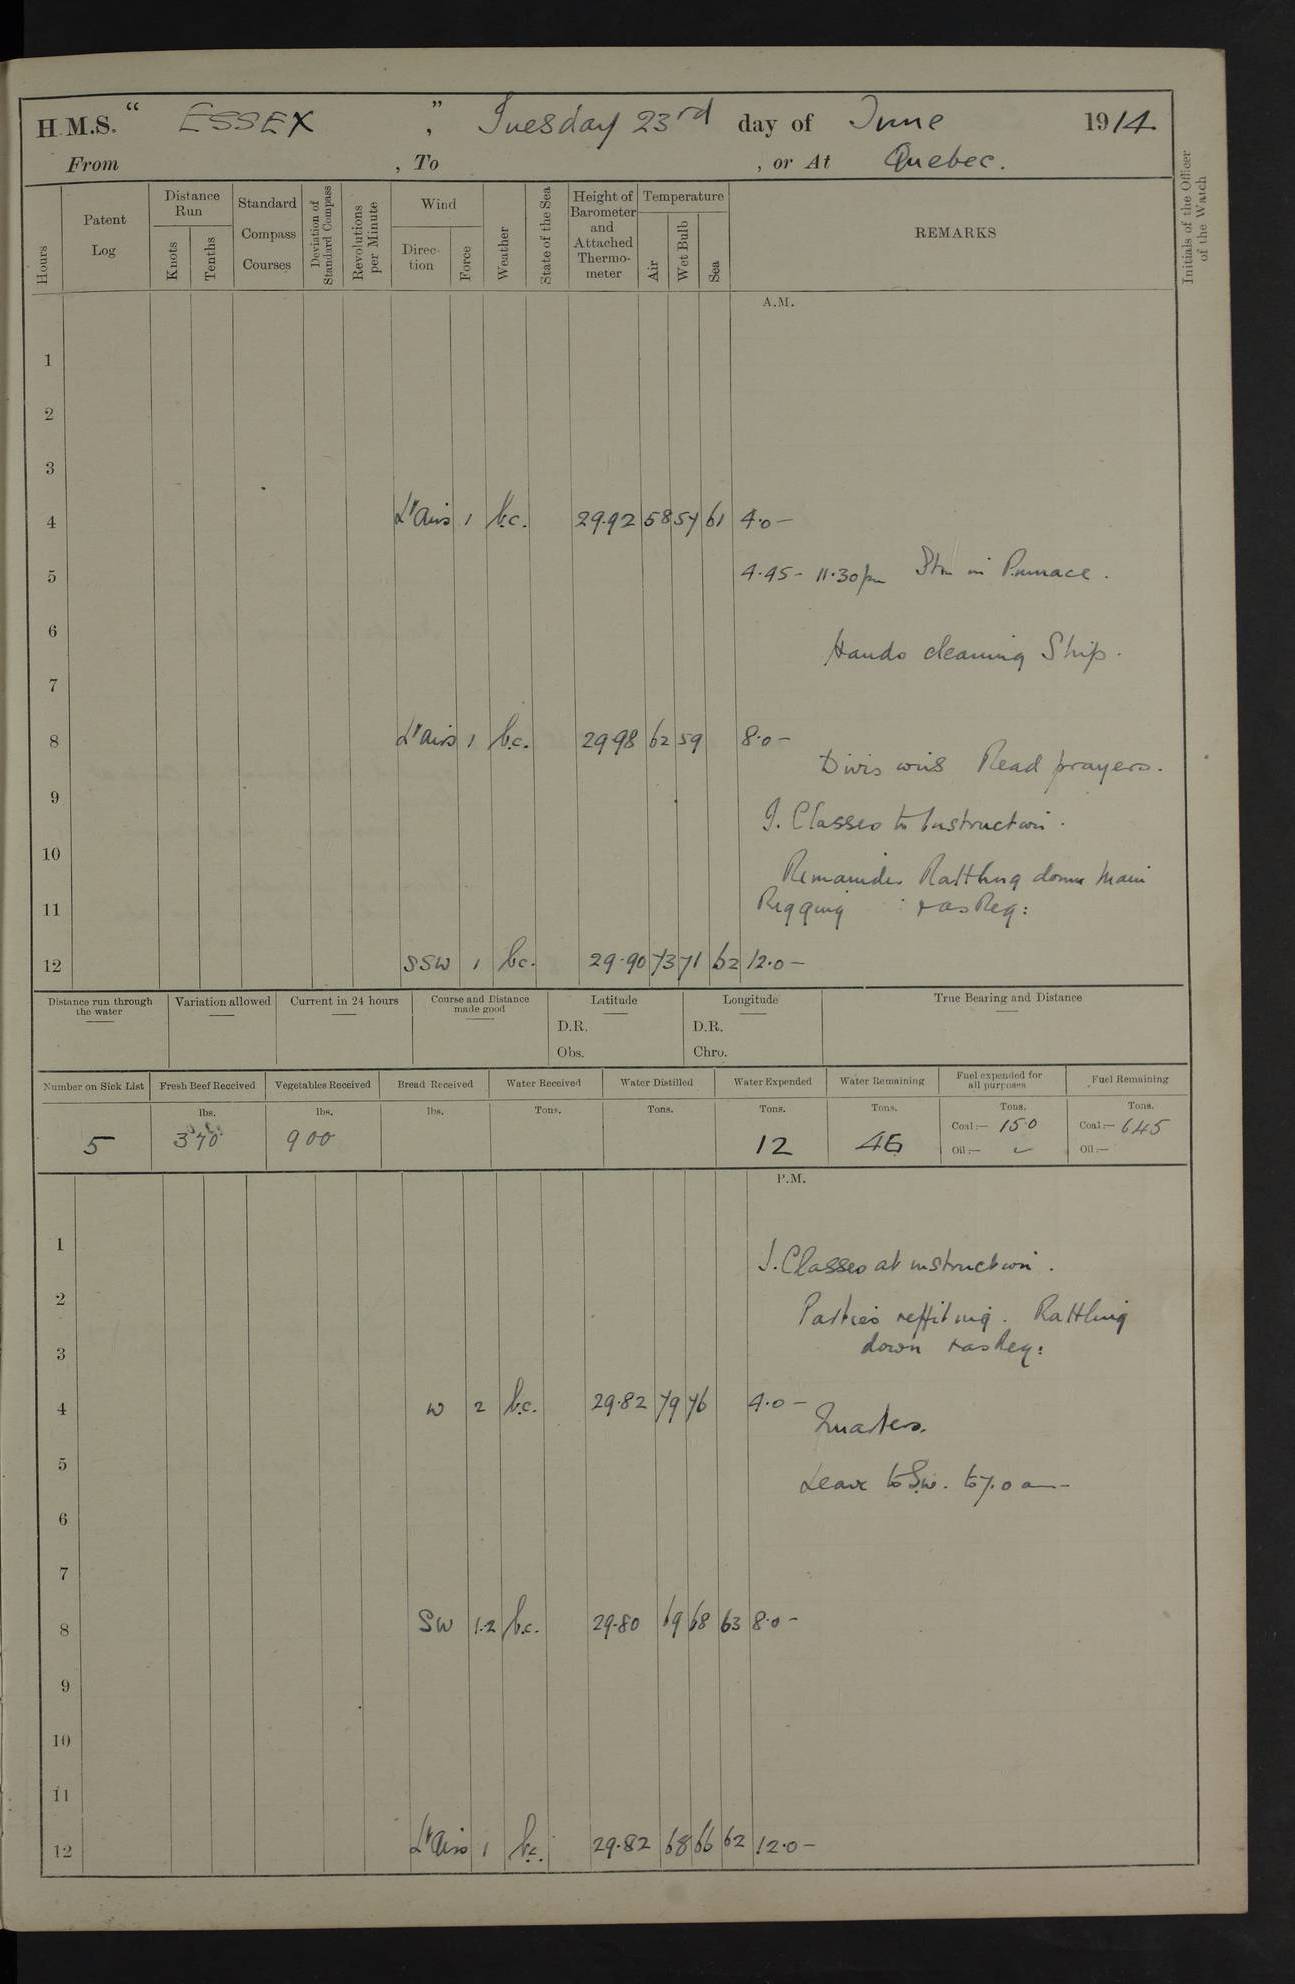 H.M.S. “ ESSEX ” , Tuesday 23rd day of June 1914
From , To , or At Quebec.
Hours
Patent Log
Distance Run
Knots
Tenths
Standard Compass Courses
Deviation of Standard Compass
Revolutions per Minute
Wind
Direction
Force
Weather
State of the Sea
Height of Barometer and Attached Thermometer
Temperature
Air
Wet Bulb
Sea
REMARKS
Initials of the Officer of the Watch
A.M.
1
2
3
4 Lt Airs 1 b.c. 29.92 58 57 61 4.0 -
5 4.45 - 11.30 pm Stm in Pinnace.
6
Hands cleaning Ship.
7
8 Lt airs 1 b.c. 29.98 62 59 8.0 -
Divisions Read prayers.
9
J. Classes to Instruction.
10
Remainder Rattling down Main
11 Rigging : & as Req:
12 SSW 1 b.c. 29.90 73 71 62 12.0 -
Distance run through the water
Variation allowed
Current in 24 hours
Course and Distance made good
Latitude
D.R.
Obs.
Longitude
D.R.
Chro.
True Bearing and Distance
Number on Sick List
Fresh Beef Received
Vegetables Received
Bread Received
Water Received
Water Distilled
Water Expended
Water Remaining
Fuel expended for all purposes
Fuel Remaining
lbs. lbs. lbs. Tons. Tons. Tons. Tons. Tons. Tons.
5 370 900 12 46 Coal:— 150 Coal:— 645
Oil:— Oil:—
P.M.
1
J. Classes at instruction.
2
Parties refitting. Rattling
3 down & as Req:
4 W 2 b.c. 29.82 79 76 4.0 -
Quarters.
5
Leave to S.W. to 7.0 am
6
7
8 SW 1.2 b.c. 29.80 69 68 63 8.0 -
9
10
11
12 Lt Airs 1 b.c. 29.82 68 66 62 12.0 -